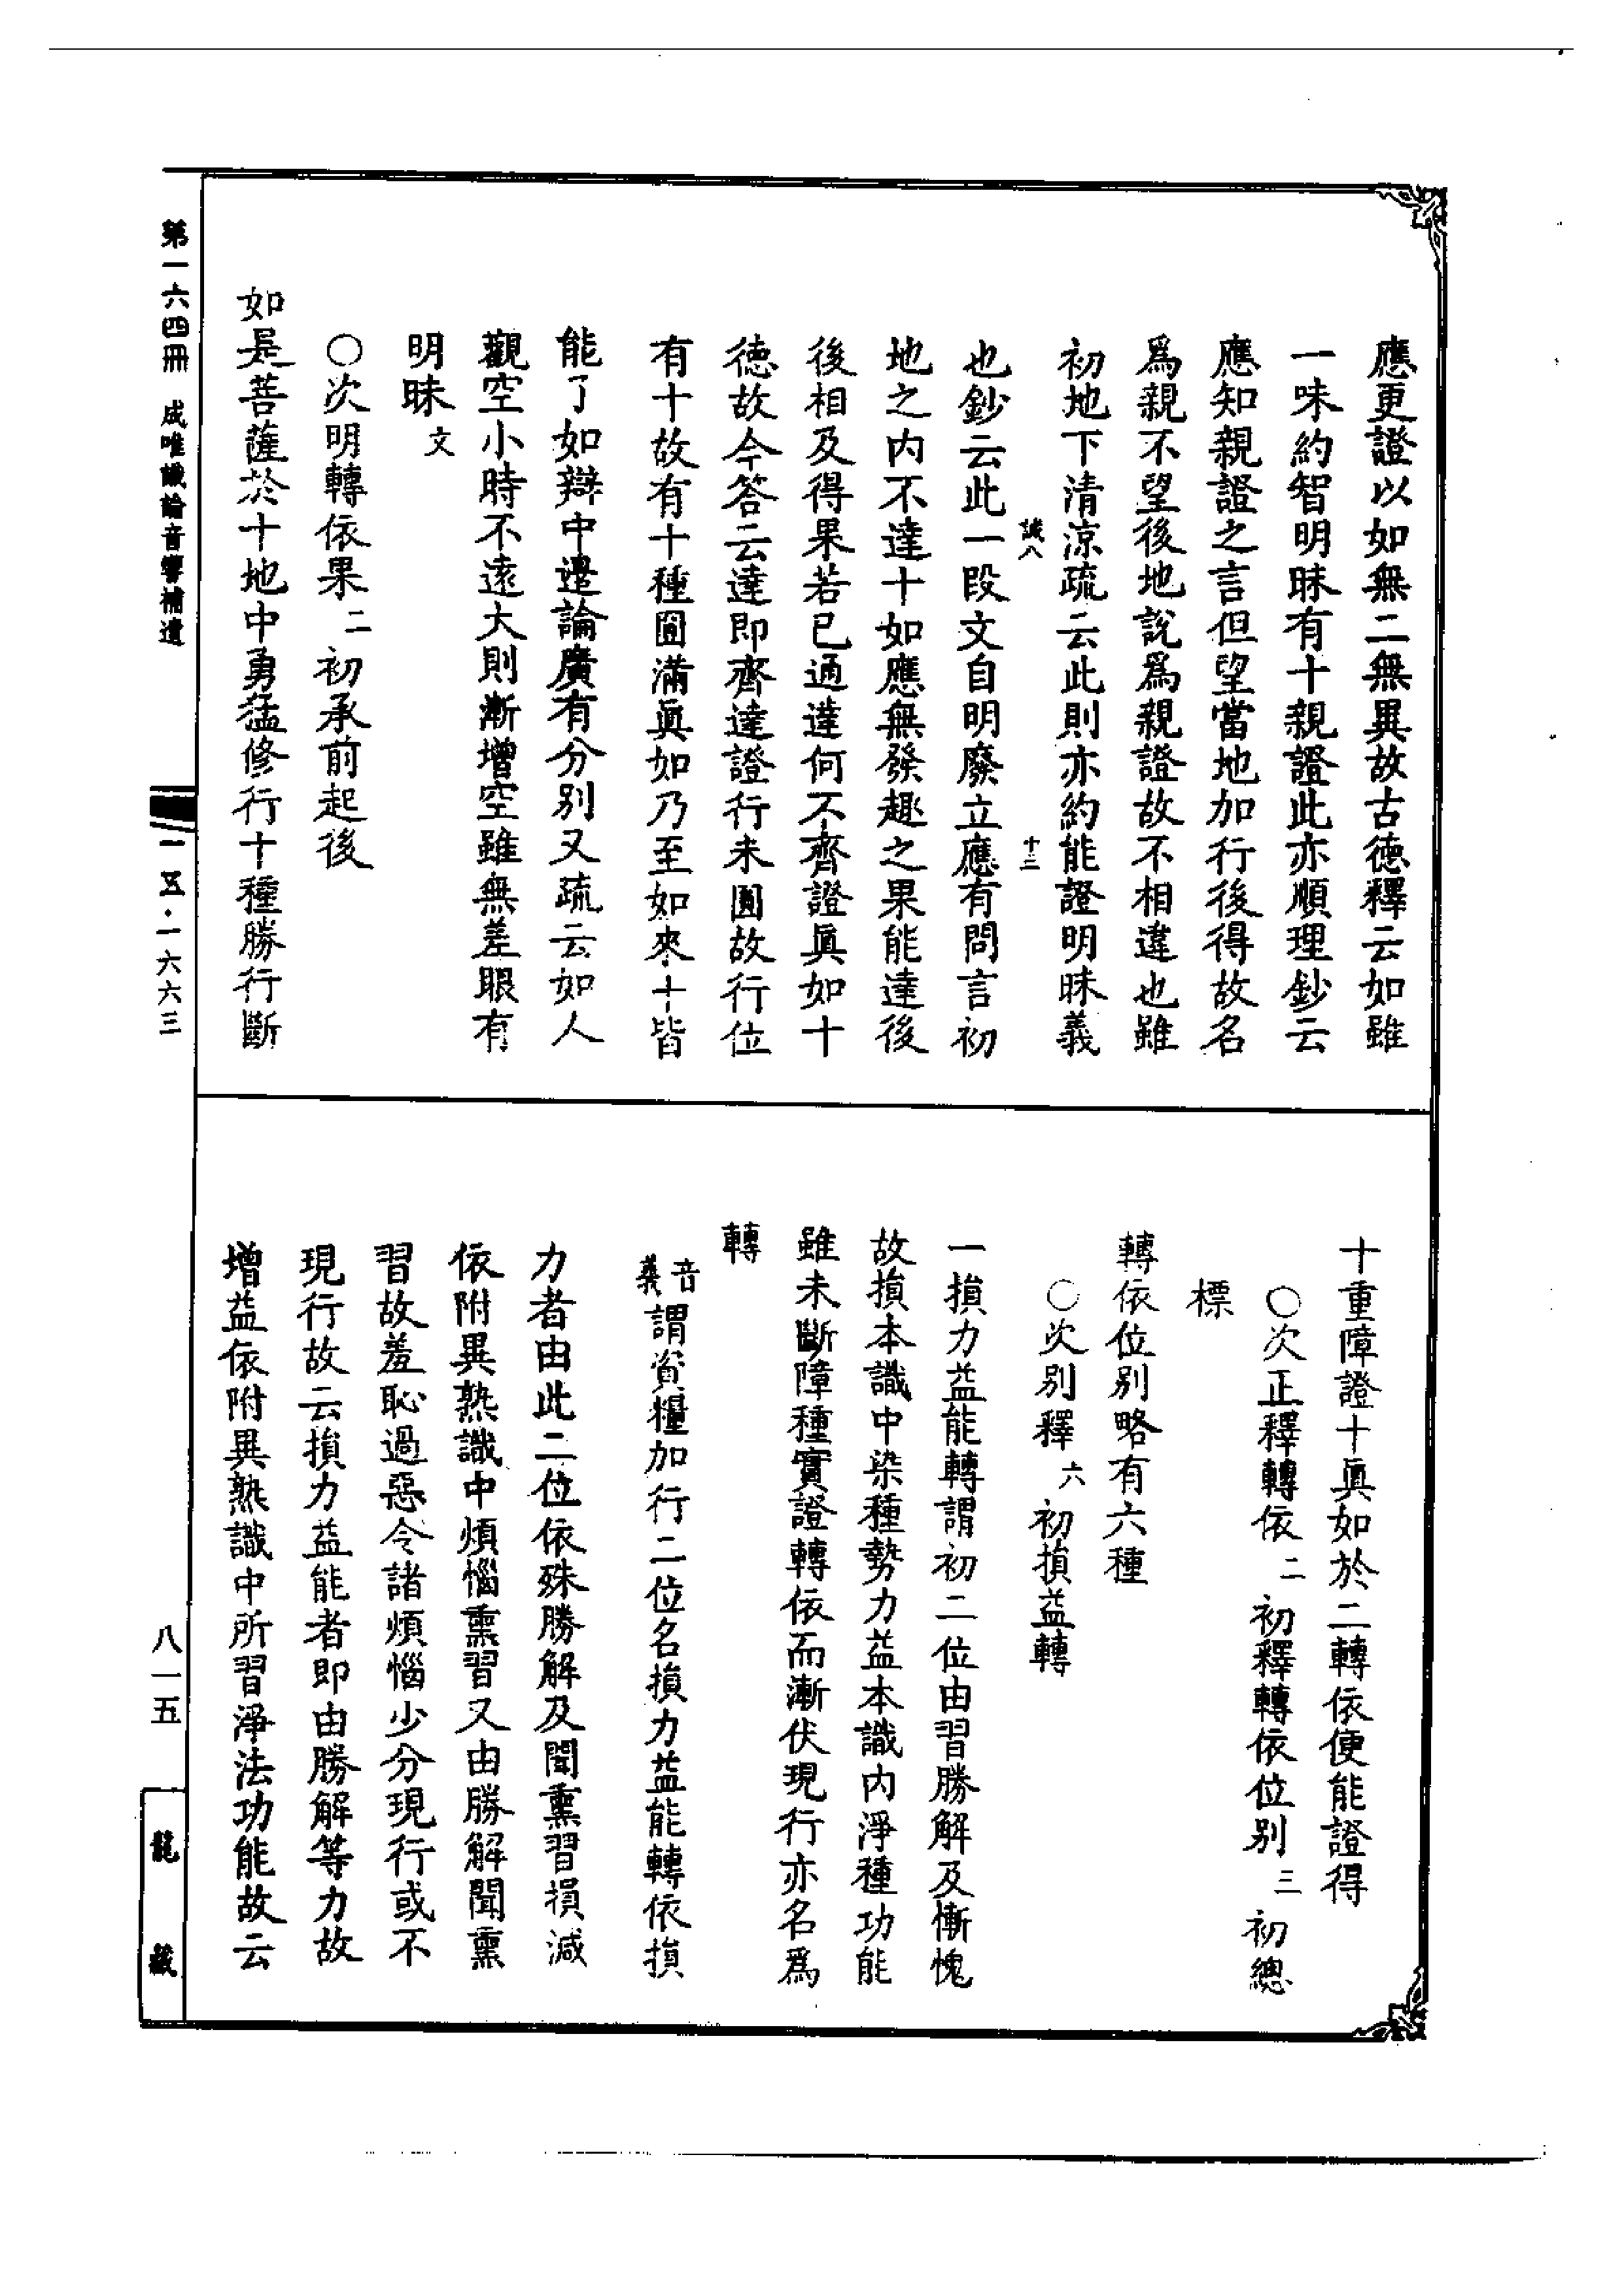 應更證以如無二無異故古徳釋云如雖
一味約智明昧有十親證此亦順理鈔云
應知親證之言但望當地加行後得故名
爲親不望後地說爲親證故不相違也雖
初地下清涼疏云此則亦約能證明昧義
誠八 十三
也鈔云此一段文自明廢立應有問言初
地之内不達十如應無發趣之果能達後
後相及得果若已通達何不齊證眞如十
徳故今答云達即齊達證行未圓故行位
有十故有十種圓滿眞如乃至如來十皆
能了如辯中邊論廣有分别又疏云如人
觀空小時不遠大則漸增空雖無差眼有
明昧 文
○次明轉依果 二 初承前起後
如是菩薩於十地中勇猛修行十種勝行斷
十重障證十眞如於二轉依便能證得
○次正釋轉依 二 初釋轉依位别 三 初總
標
轉依位别略有六種
○次别釋 六 初損益轉
一損力益能轉謂初二位由習勝解及慚愧
故損本識中染種勢力益本識内淨種功能
雖未斷障種實證轉依而漸伏現行亦名爲
轉
音義 謂資糧加行二位名損力益能轉依損
力者由此二位依殊勝解及聞熏習損減
依附異熟識中煩惱熏習又由勝解聞熏
習故羞恥過惡令諸煩惱少分現行或不
現行故云損力益能者即由勝解等力故
增益依附異熟識中所習淨法功能故云
第一六四冊 成唯識論音響補遺
一五·一六六三
八一五
龍藏